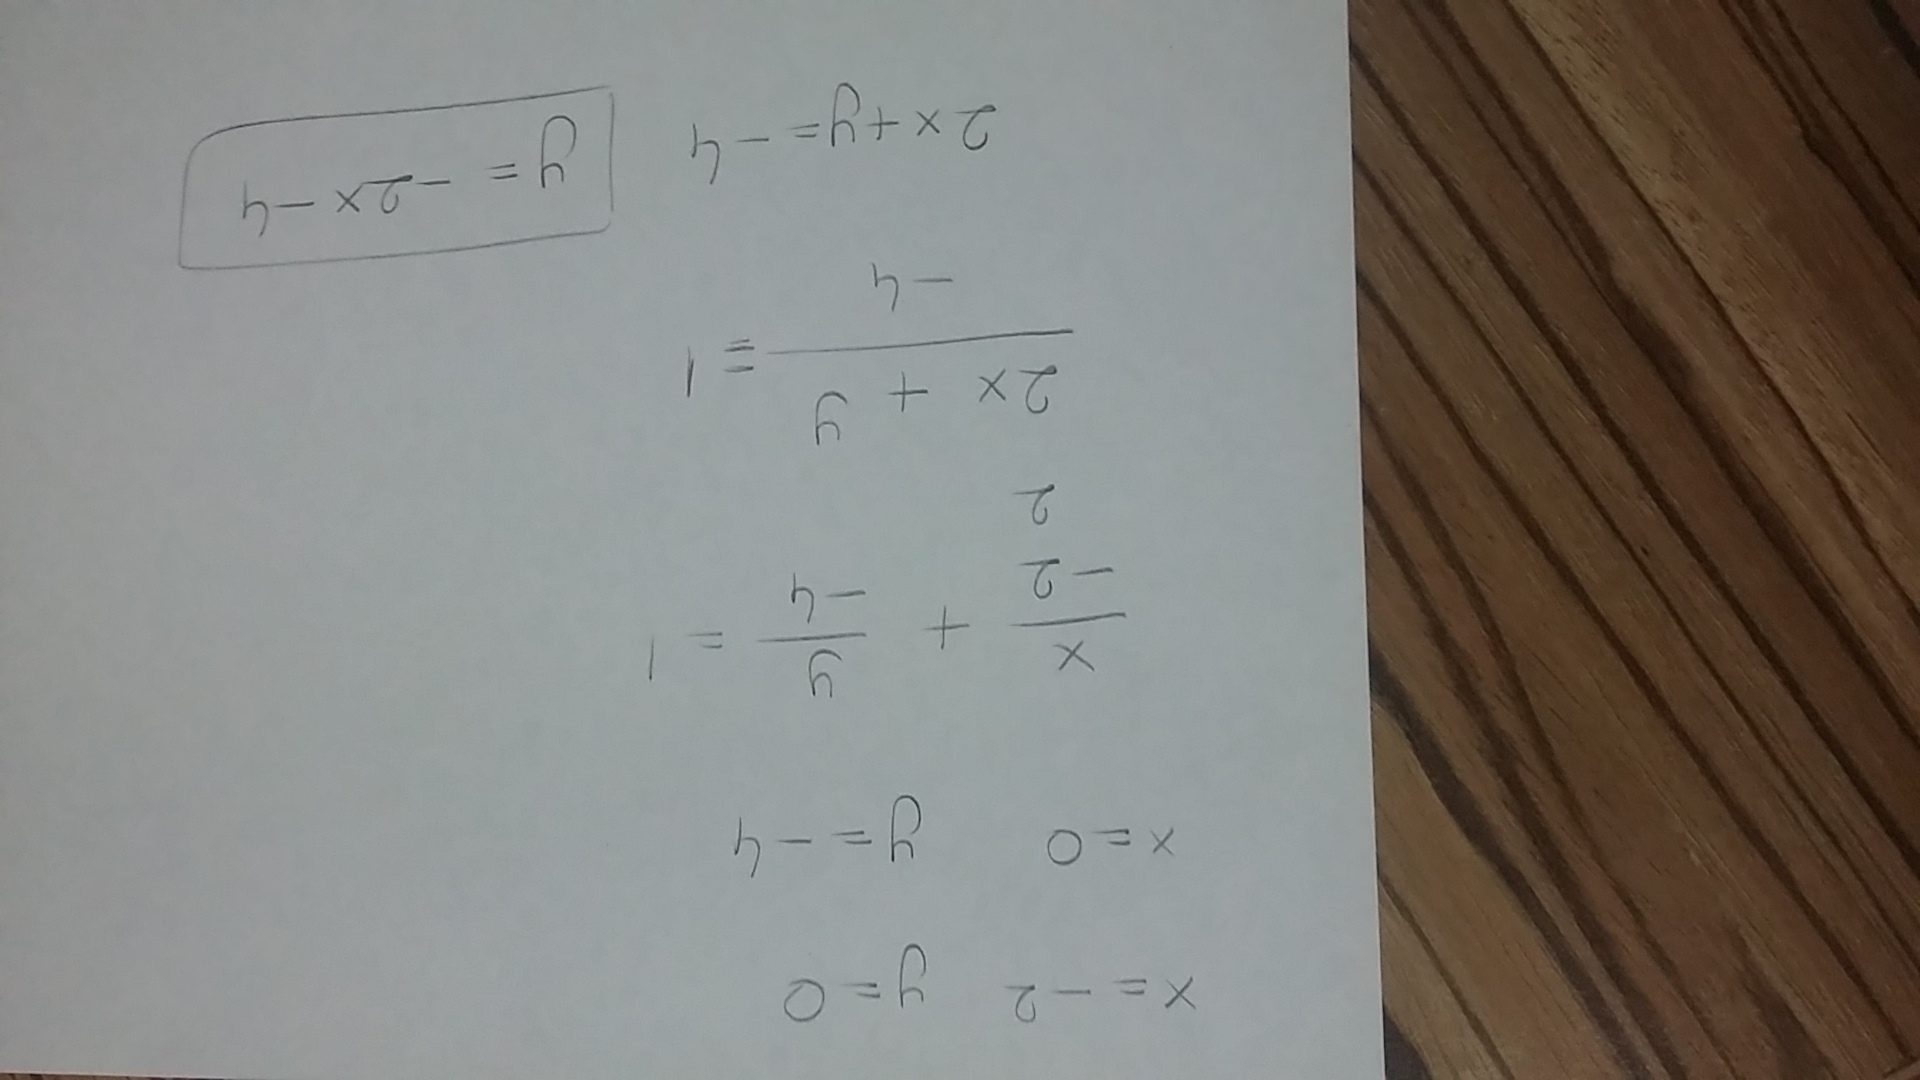 x = -2 y = 0
x = 0 y = -4
x/-2 + y/-4 = 1
2
2x + y/-4 = 1
2x + y = -4 y = -2x - 4